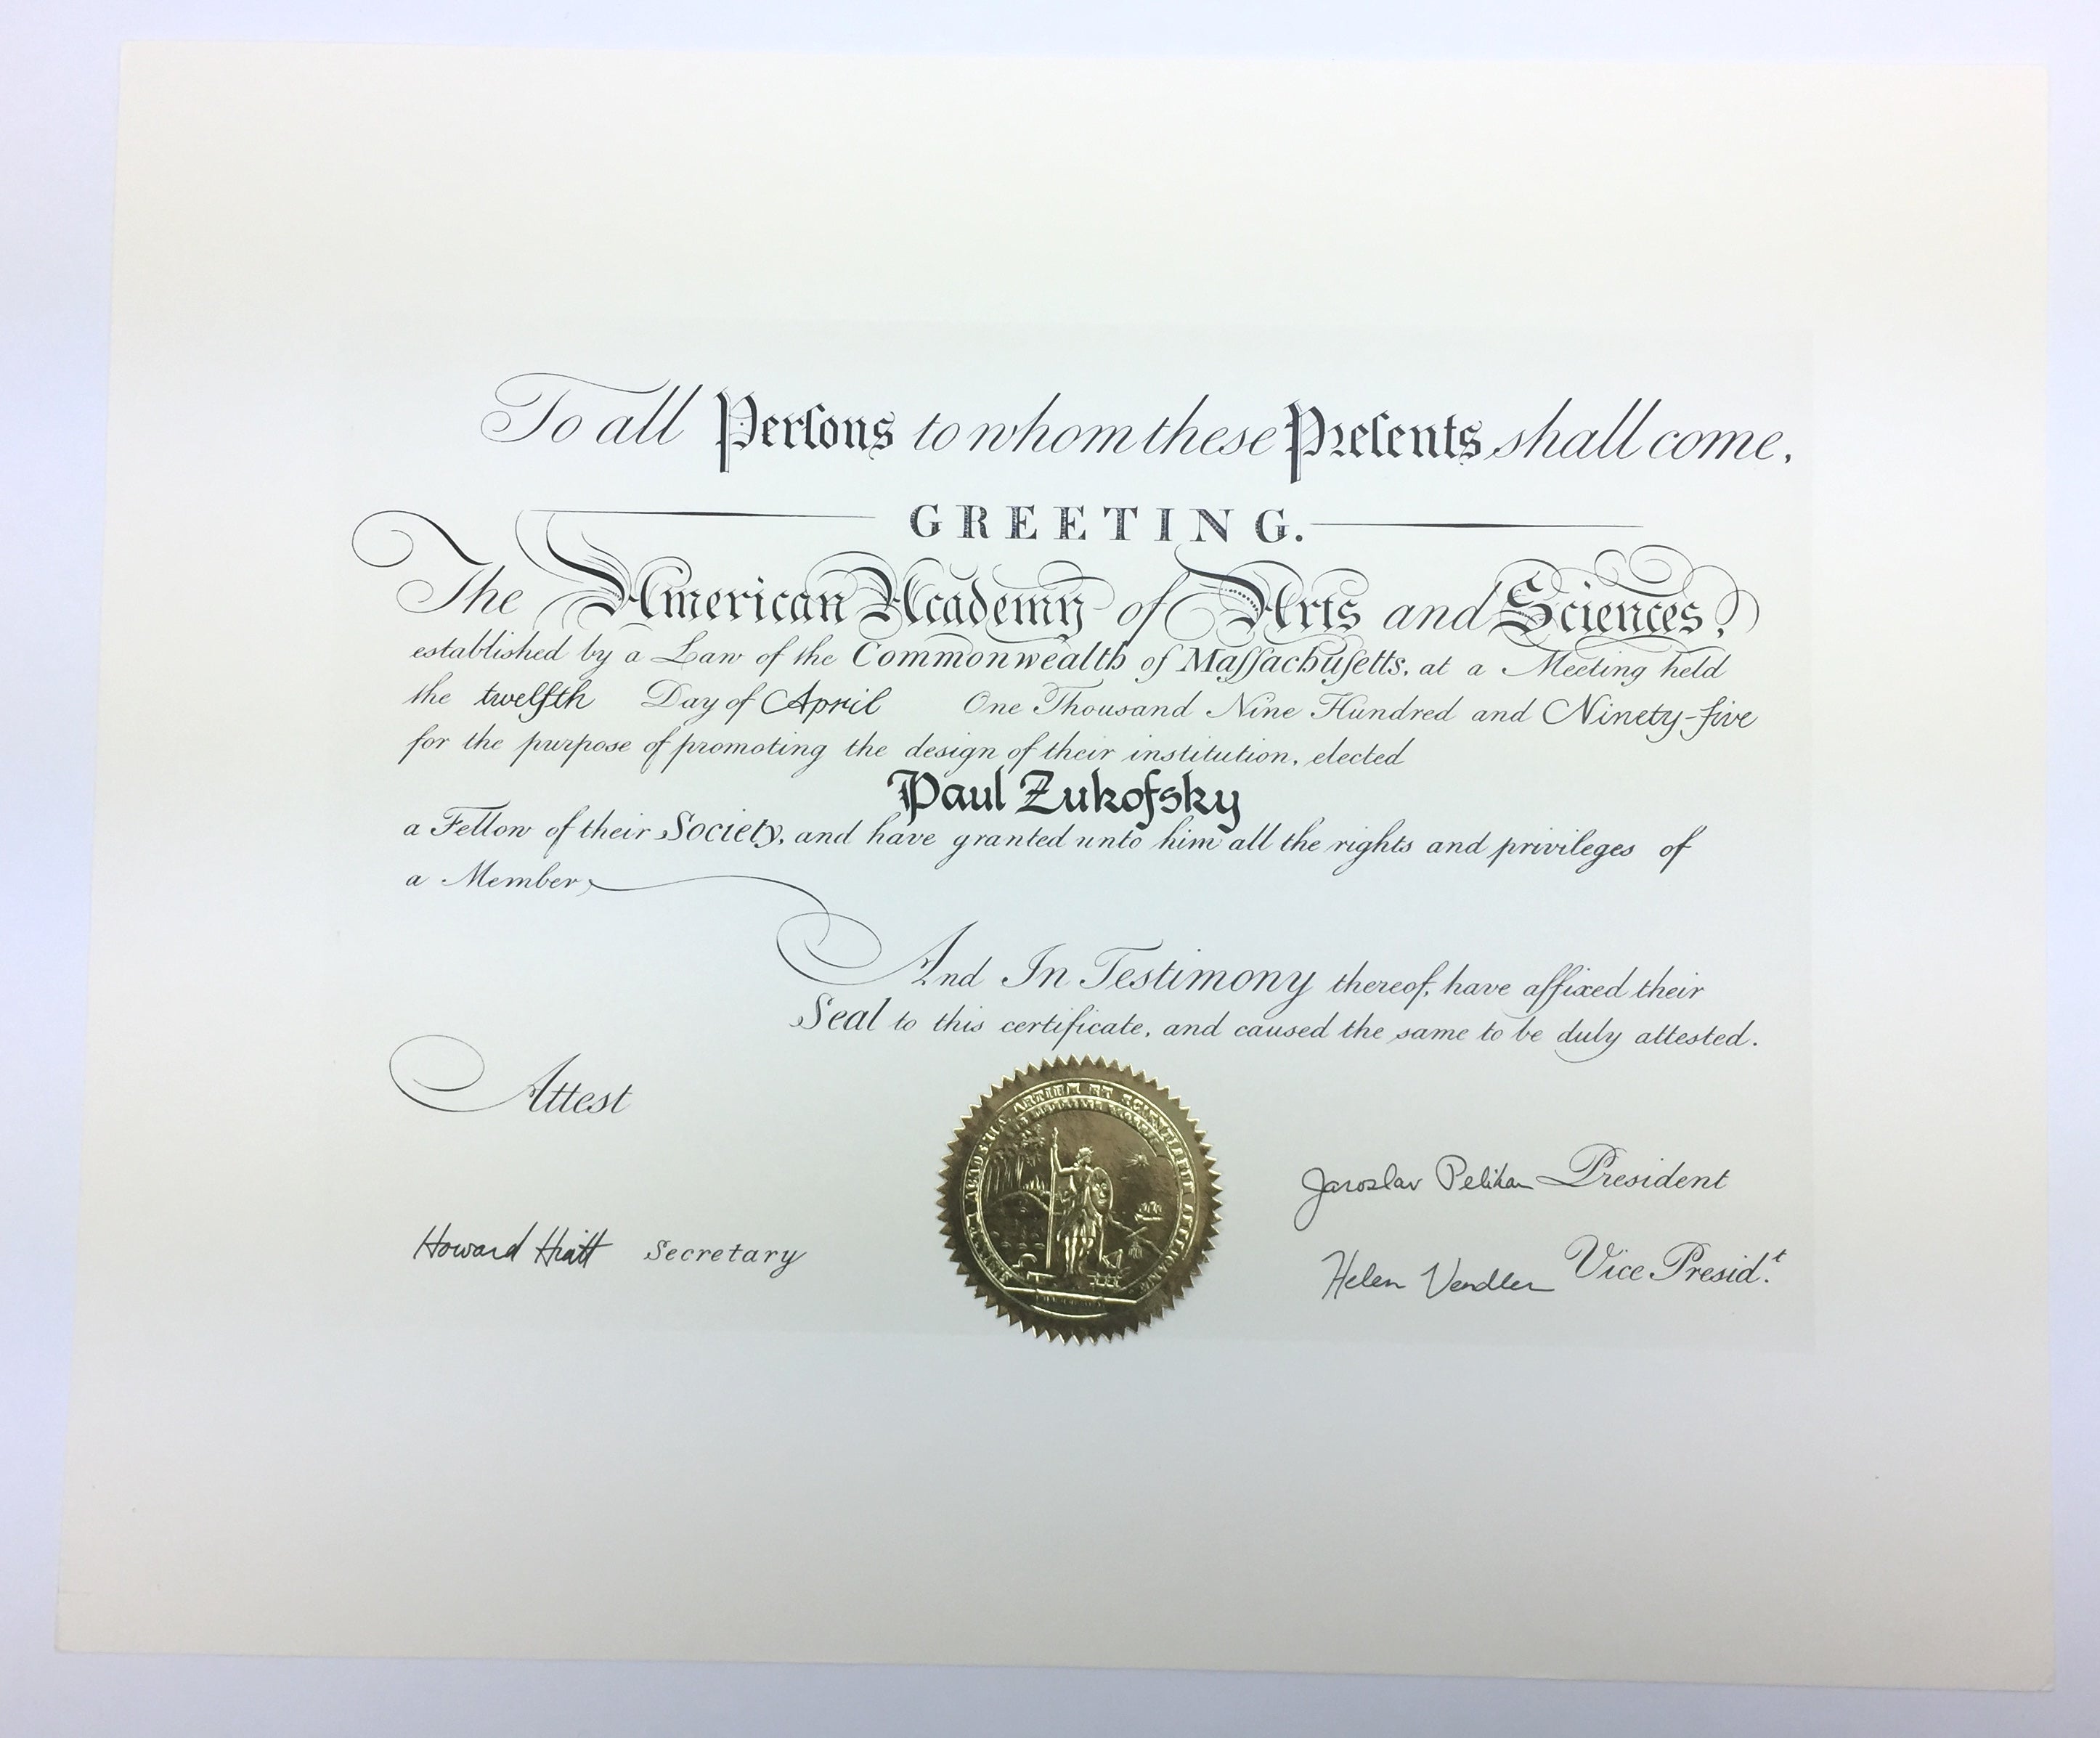 To all Perſons to whom these Preſents shall come,
GREETING.
The American Academy of Arts and Sciences,
established by a Law of the Commonwealth of Maſſachuſetts, at a Meeting held
the twelfth Day of April One Thousand Nine Hundred and Ninety-five
for the purpose of promoting the design of their institution, elected
Paul Zukofsky
a Fellow of their Society, and have granted unto him all the rights and privileges of
a Member;
And In Testimony thereof, have affixed their
Seal to this certificate, and caused the same to be duly attested.
Attest
ARTIUM ET SCIENTIARUM
Jaroslav Pelikan President
Howard Hiatt Secretary
Helen Vendler Vice Presid.t